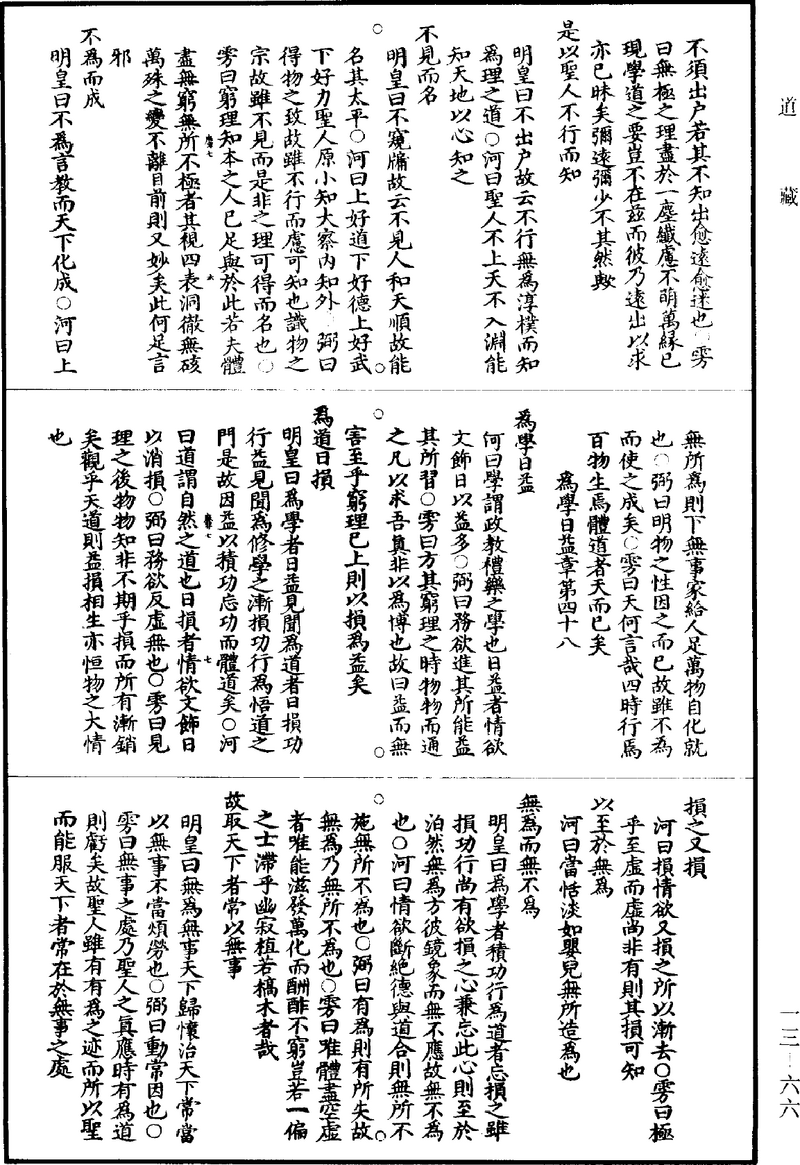 道藏
不須出户若其不知出愈遠愈迷也○雱
曰無極之理盡於一塵纖慮不萌萬緣已
現學道之要豈不在茲而彼乃遠出以求
亦已昧矣彌遠彌少不其然歟
是以聖人不行而知
明皇曰不出户故云不行無為淳樸而知
為理之道○河曰聖人不上天不入淵能
知天地以心知之
不見而名
明皇曰不窺牖故云不見人和天順故能
名其太平○河曰上好道下好德上好武
下好力聖人原小知大察內知外○弼曰
得物之致故雖不行而慮可知也識物之
宗故雖不見而是非之理可得而名也○
雱曰窮理知本之人已足與於此若夫體
盡無窮無所不極者其視四表洞徹無礙
萬殊之變不離目前則又妙矣此何足言
邪
不為而成
明皇曰不為言教而天下化成○河曰上
無所為則下無事家給人足萬物自化就
也○弼曰明物之性因之而已故雖不為
而使之成矣○雱曰天何言哉四時行焉
百物生焉體道者天而已矣
為學日益章第四十八
為學日益
河曰學謂政教禮樂之學也日益者情欲
文飾日以益多○弼曰務欲進其所能益
其所習○雱曰方其窮理之時物物而通
之凡以求吾真非以為博也故曰益而無
害至乎窮理已上則以損為益矣
為道日損
明皇曰為學者日益見聞為道者日損功
行益見聞為修學之漸損功行為悟道之
門是故因益以積功忘功而體道矣○河
曰道謂自然之道也日損者情欲文飾日
以消損○弼曰務欲反虛無也○雱曰見
理之後物物知非不期乎損而所有漸銷
矣觀乎天道則益損相生亦恒物之大情
也
損之又損
河曰損情欲又損之所以漸去○雱曰極
乎至虛而虛尚非有則其損可知
以至於無為
河曰當恬淡如嬰兒無所造為也
無為而無不為
明皇曰為學者積功行為道者忘損之雖
損功行尚有欲損之心兼忘此心則至於
泊然無為方彼鏡象而無不應故無不為
也○河曰情欲斷絕德與道合則無所不
施無所不為也○弼曰有為則有所失故
無為乃無所不為也○雱曰唯體盡空虛
者唯能滋發萬化而酬酢不窮豈若一偏
之士滯乎幽寂植若槁木者哉
故取天下者常以無事
明皇曰無為無事天下歸懷治天下常當
以無事不當煩勞也○弼曰動常因也○
雱曰無事之處乃聖人之真應時有為道
則虧矣故聖人雖有有為之迹而所以聖
而能服天下者常在於無事之處
一三—六六